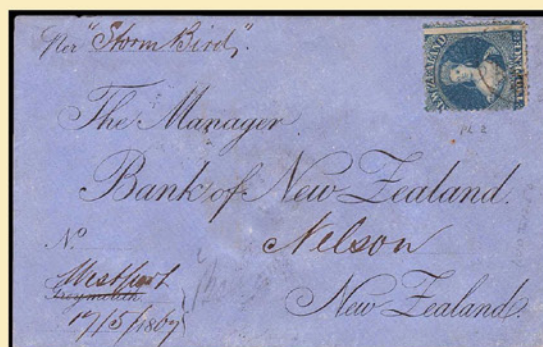 Per "Storm Bird".
NEW ZEALAND
PL 2
The Manager
Bank of New Zealand.
No
Nelson
Westport
Greymouth
New Zealand.
17/5/1867